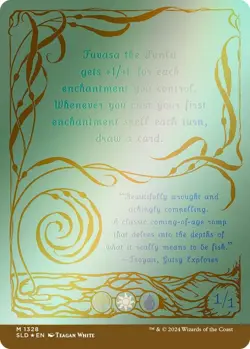 Tuvasa the Sunlit
gets +1/+1 for each
enchantment you control.
Whenever you cast your first
enchantment spell each turn,
draw a card.
"Beautifully wrought and
achingly compelling.
A classic coming-of-age romp
that delves into the depths of
what it really means to be fish."
—Teegan, Gutsy Explorer
1/1
M 1328
SLD ★ TEAGAN WHITE
™ & © 2024 Wizards of the Coast